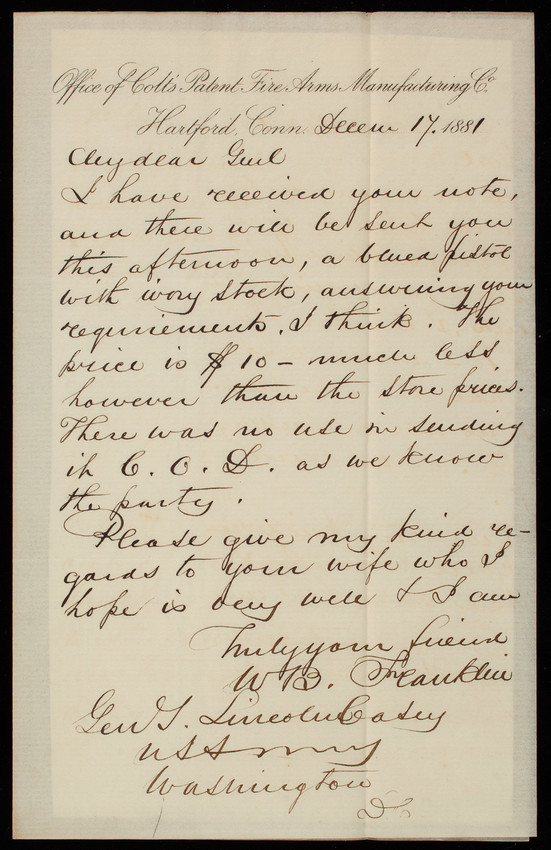 Office of Colt's Patent Fire Arms Manufacturing Co.
Hartford, Conn. Decem 17. 1881
My dear Genl
I have received your note,
and there will be sent you
this afternoon, a blued pistol
with ivory stock, answering your
requirements. I think. The
price is $10 – much less
however than the store prices.
There was no use in sending
it C. O. D. as we know
the party.
Please give my kind re-
gards to your wife who I
hope is very well & I am
Truly your friend
W B. Franklin
Genl T. Lincoln Casey
U S Army
Washington
D C